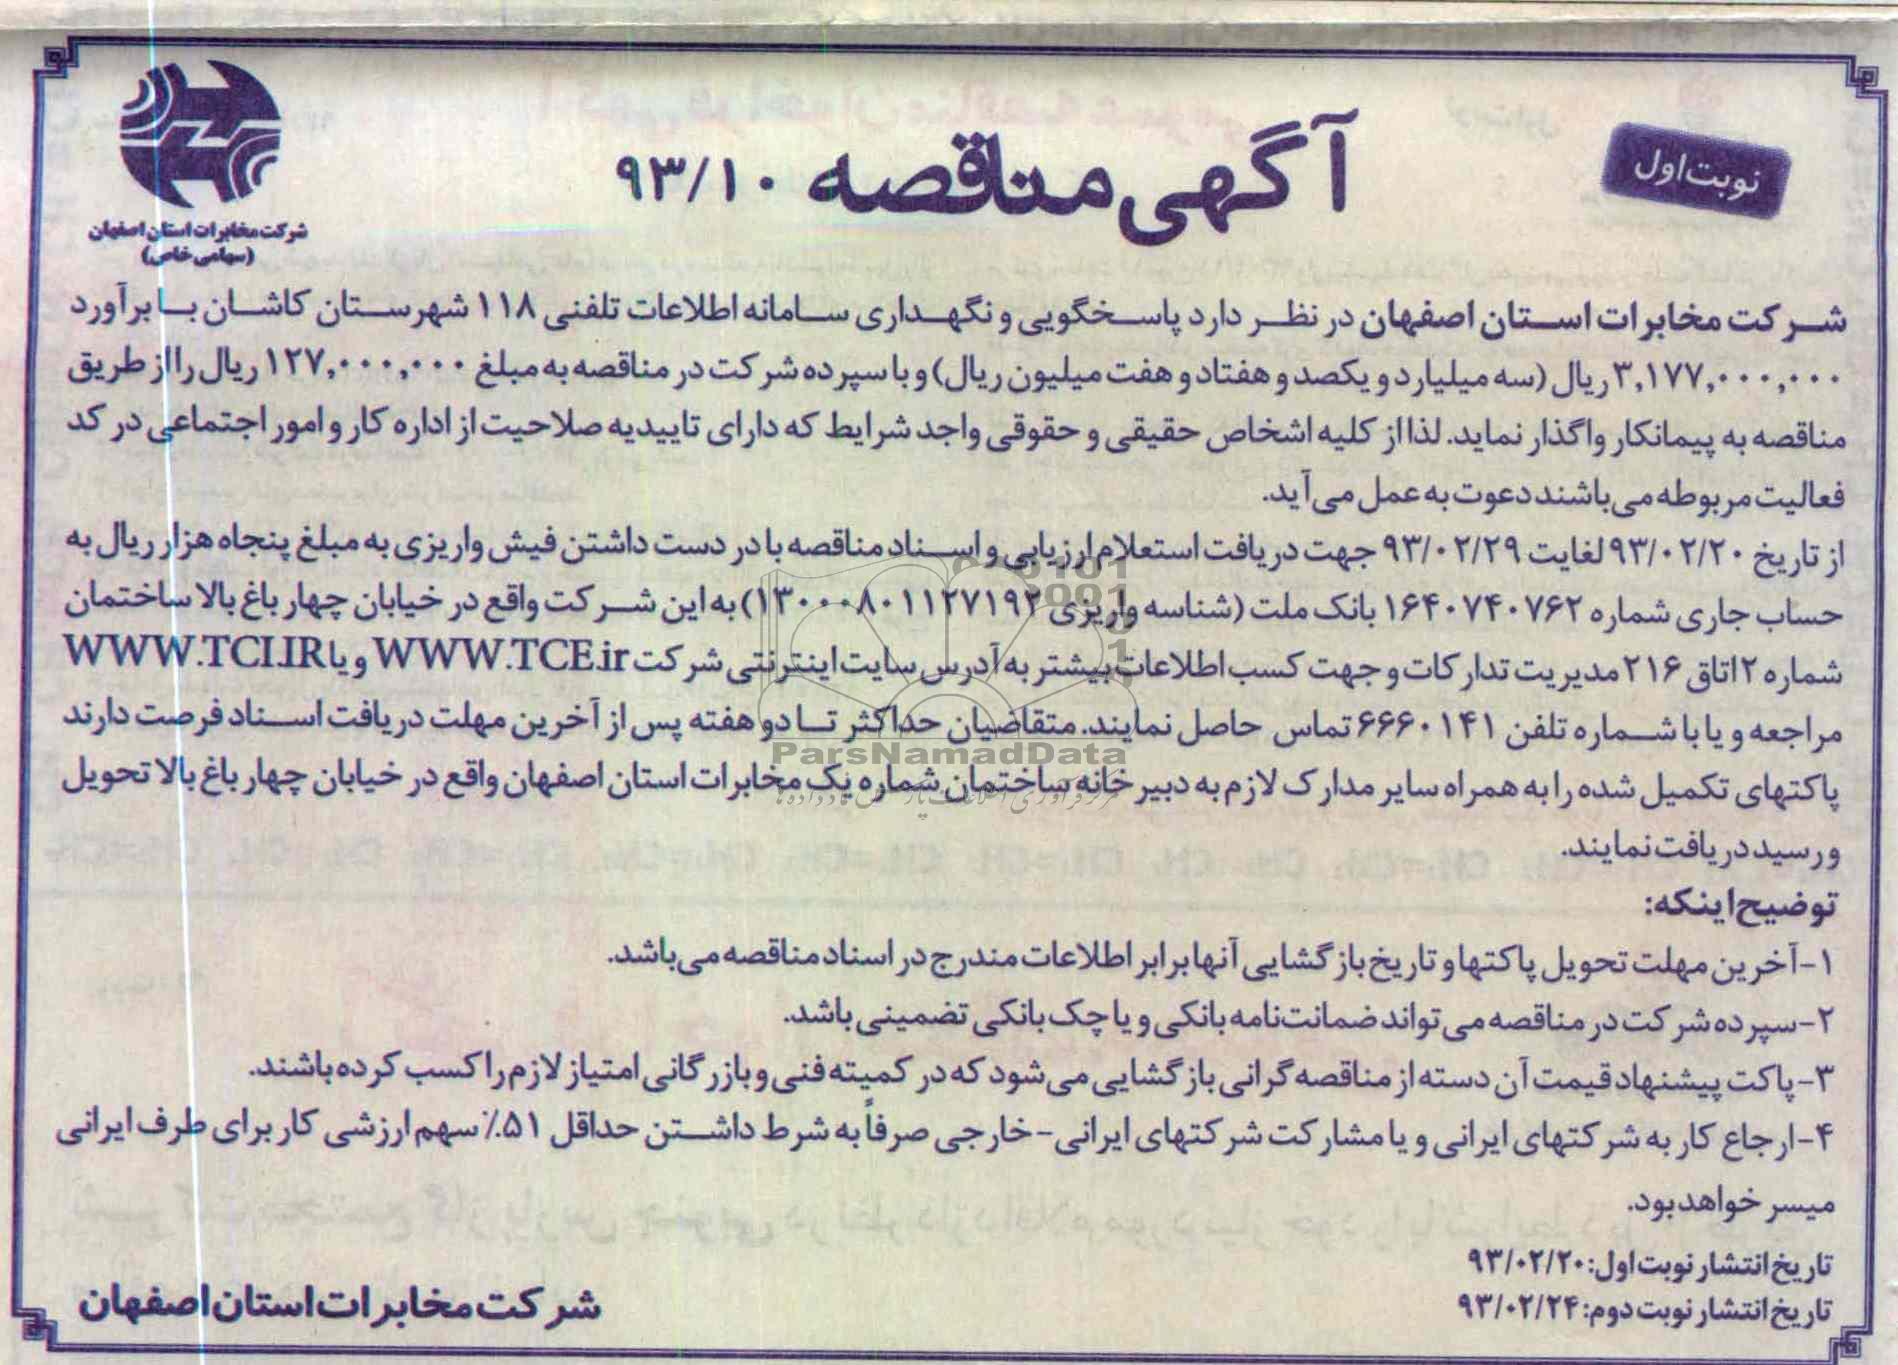 نوبت اول
آگهی مناقصه ۹۳/۱۰
شرکت مخابرات استان اصفهان
(سهامی خاص)
شرکت مخابرات استان اصفهان در نظر دارد پاسخگویی و نگهداری سامانه اطلاعات تلفنی ۱۱۸ شهرستان کاشان با برآورد
۳,۱۷۷,۰۰۰,۰۰۰ ریال (سه میلیارد و یکصد و هفتاد و هفت میلیون ریال) و با سپرده شرکت در مناقصه به مبلغ ۱۲۷,۰۰۰,۰۰۰ ریال را از طریق
مناقصه به پیمانکار واگذار نماید. لذا از کلیه اشخاص حقیقی و حقوقی واجد شرایط که دارای تاییدیه صلاحیت از اداره کار و امور اجتماعی در کد
فعالیت مربوطه می‌باشند دعوت به عمل می‌آید.
از تاریخ ۹۳/۰۲/۲۰ لغایت ۹۳/۰۲/۲۹ جهت دریافت استعلام ارزیابی و اسناد مناقصه با در دست داشتن فیش واریزی به مبلغ پنجاه هزار ریال به
حساب جاری شماره ۱۶۴۰۷۴۰۷۶۲ بانک ملت (شناسه واریزی ۱۳۰۰۰۸۰۱۱۲۷۱۹۲) به این شرکت واقع در خیابان چهار باغ بالا ساختمان
شماره ۲ اتاق ۲۱۶ مدیریت تدارکات و جهت کسب اطلاعات بیشتر به آدرس سایت اینترنتی شرکت WWW.TCE.ir و یا WWW.TCI.IR
مراجعه و یا با شماره تلفن ۶۶۶۰۱۴۱ تماس حاصل نمایند. متقاضیان حداکثر تا دو هفته پس از آخرین مهلت دریافت اسناد فرصت دارند
پاکتهای تکمیل شده را به همراه سایر مدارک لازم به دبیرخانه ساختمان شماره یک مخابرات استان اصفهان واقع در خیابان چهار باغ بالا تحویل
و رسید دریافت نمایند.
توضیح اینکه:
۱-آخرین مهلت تحویل پاکتها و تاریخ بازگشایی آنها برابر اطلاعات مندرج در اسناد مناقصه می‌باشد.
۲-سپرده شرکت در مناقصه می‌تواند ضمانت‌نامه بانکی و یا چک بانکی تضمینی باشد.
۳-پاکت پیشنهاد قیمت آن دسته از مناقصه گرانی بازگشایی می‌شود که در کمیته فنی و بازرگانی امتیاز لازم را کسب کرده باشند.
۴-ارجاع کار به شرکتهای ایرانی و یا مشارکت شرکتهای ایرانی-خارجی صرفاً به شرط داشتن حداقل ۵۱٪ سهم ارزشی کار برای طرف ایرانی
میسر خواهد بود.
تاریخ انتشار نوبت اول: ۹۳/۰۲/۲۰
تاریخ انتشار نوبت دوم: ۹۳/۰۲/۲۴
شرکت مخابرات استان اصفهان
ParsNamadData